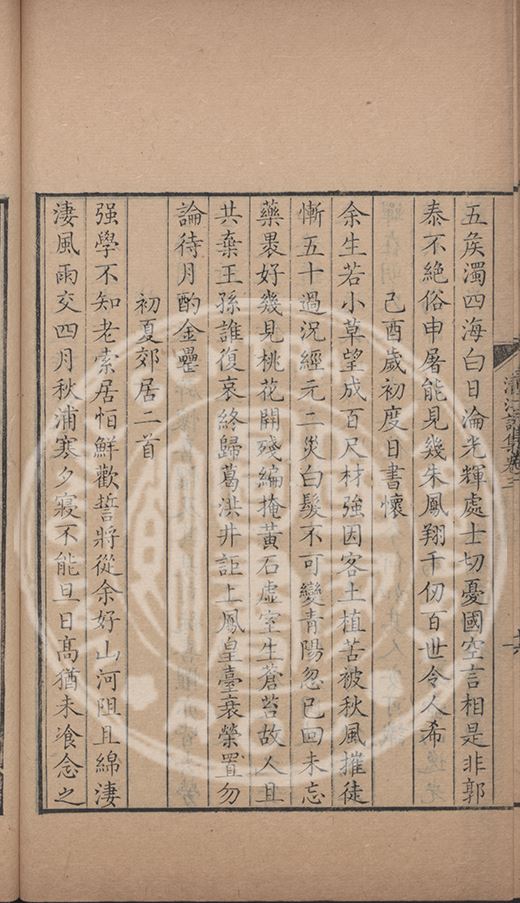 五矦濁四海白日淪光輝處士切憂國空言相是非郭
泰不絶俗申屠能見幾朱鳳翔千仞百世令人希
己酉歲初度日書懷
余生若小草望成百尺材強因客土植苦被秋風摧徒
慚五十過況經元二災白髮不可變青陽忽已回未忘
藥褁好幾見桃花開殘編掩黃石虛室生蒼苔故人且
共棄王孫誰復哀終歸葛洪井詎上鳳皇臺衰榮置勿
論待月酌金罍
初夏郊居二首
强學不知老索居怕鮮歡誓將從余好山河阻且綿淒
淒風雨交四月秋浦寒夕寢不能旦日髙猶未飡念之